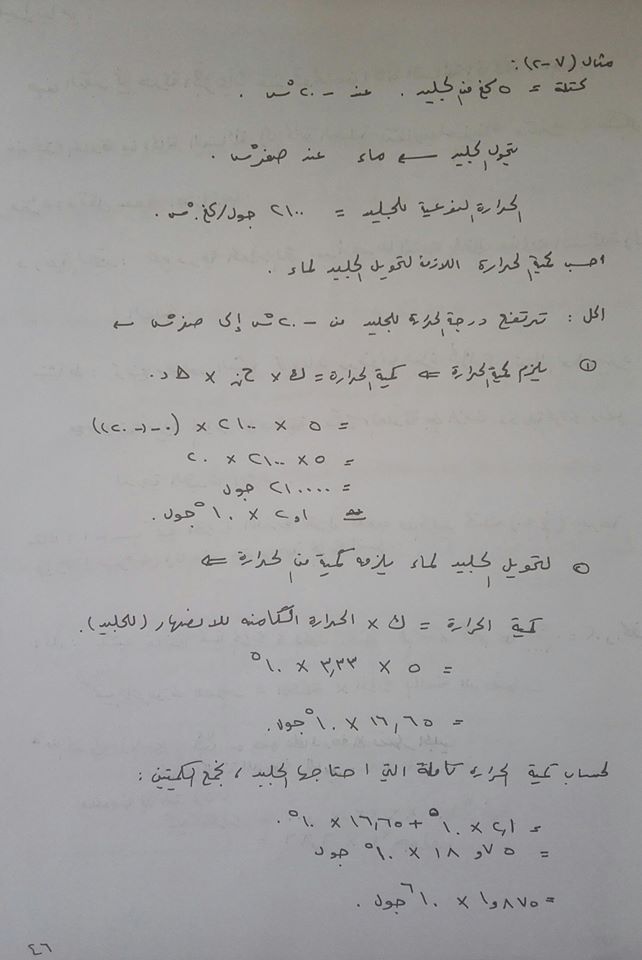 مثال (٧-٢):
كتلة = ٥ كغ من الجليد . عند -٢٠°س .
يتحول الجليد ← ماء عند صفر°س .
الحرارة النوعية للجليد = ٢١٠٠ جول/كغ.°س .
احسب كمية الحرارة اللازمة لتحويل الجليد لماء .
الحل : ترتفع درجة الحرارة للجليد من -٢٠°س إلى صفر°س ←
① يلزم كمية الحرارة ⇐ كمية الحرارة = ك × حن × Δ د.
= ٥ × ٢١٠٠ × (٠-(-٢٠))
= ٥ × ٢١٠٠ × ٢٠
= ٢١٠٠٠٠ جول
= ٢,١ × ١٠^٥ جول.
② لتحويل الجليد لماء يلزمه كمية من الحرارة ⇐
كمية الحرارة = ك × الحرارة الكامنه للانصهار (للجليد).
= ٥ × ٣,٣٣ × ١٠^٥
= ١٦,٦٥ × ١٠^٥ جول.
لحساب كمية الحرارة كاملة التي احتاجها الجليد ، نجمع الكميتين :
= ٢,١ × ١٠^٥ + ١٦,٦٥ × ١٠^٥ .
= ١٨,٧٥ × ١٠^٥ جول
= ١,٨٧٥ × ١٠^٦ جول .
٤٦